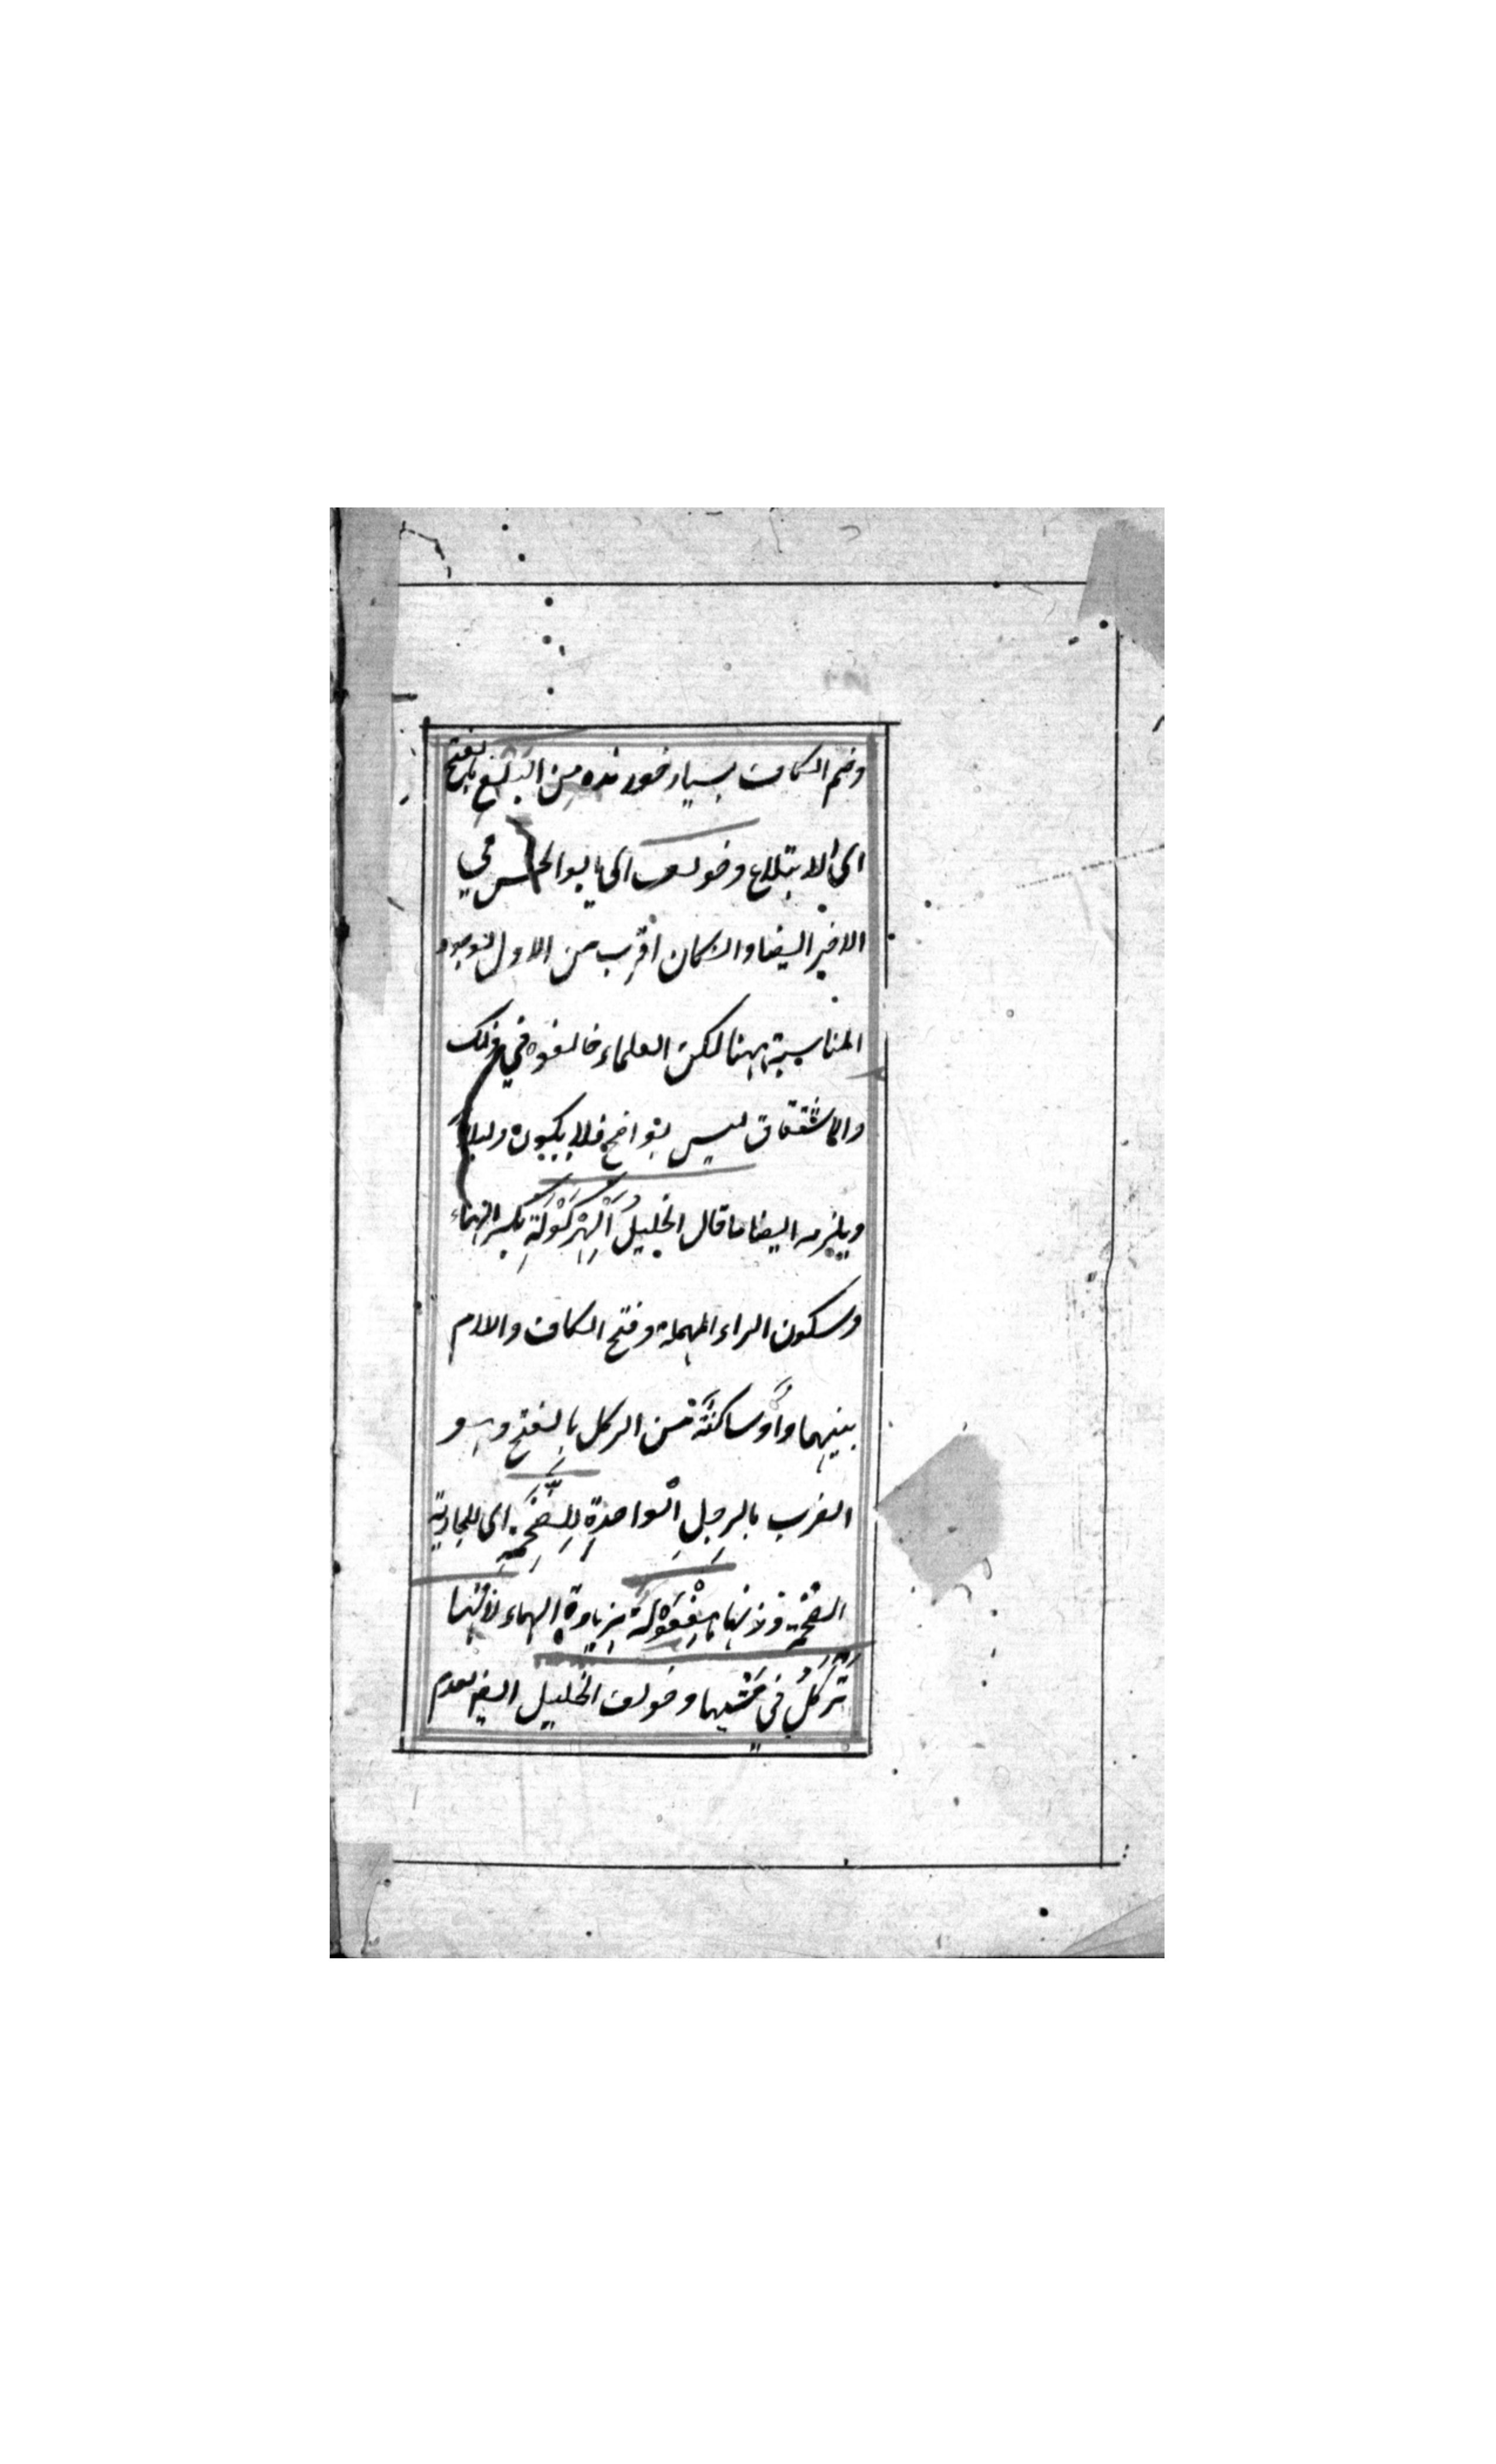 وضم الكاف بسيار خورنده من البلع بالفتح
اى الابتلاع وخولف اى ابو الحسن في
الاخير ايضا وان كان اقرب من الاول لوجود
المناسبة ههنا لكن العلماء خالفوه في ذلك
والاشتقاق ليس بواضح فلا يكون دليلا
ويلزمه ايضا ما قال الخليل اَلْهِرْكَوْلَةِ بكسر الهاء
وسكون الراء المهملة وفتح الكاف واللام
بينهما واوٌ ساكنةٌ من الركل بالفتح وهو
الضرب بالرجلِ الْواحدةِ لِلضَّخْمَةِ اى للجارية
الضخمة وزنها هِفْعَوْلَة بزيادة الهاء لأنها
تَرْكُلُ في مَشْيِها وخولف الخليل ايضا لعدم